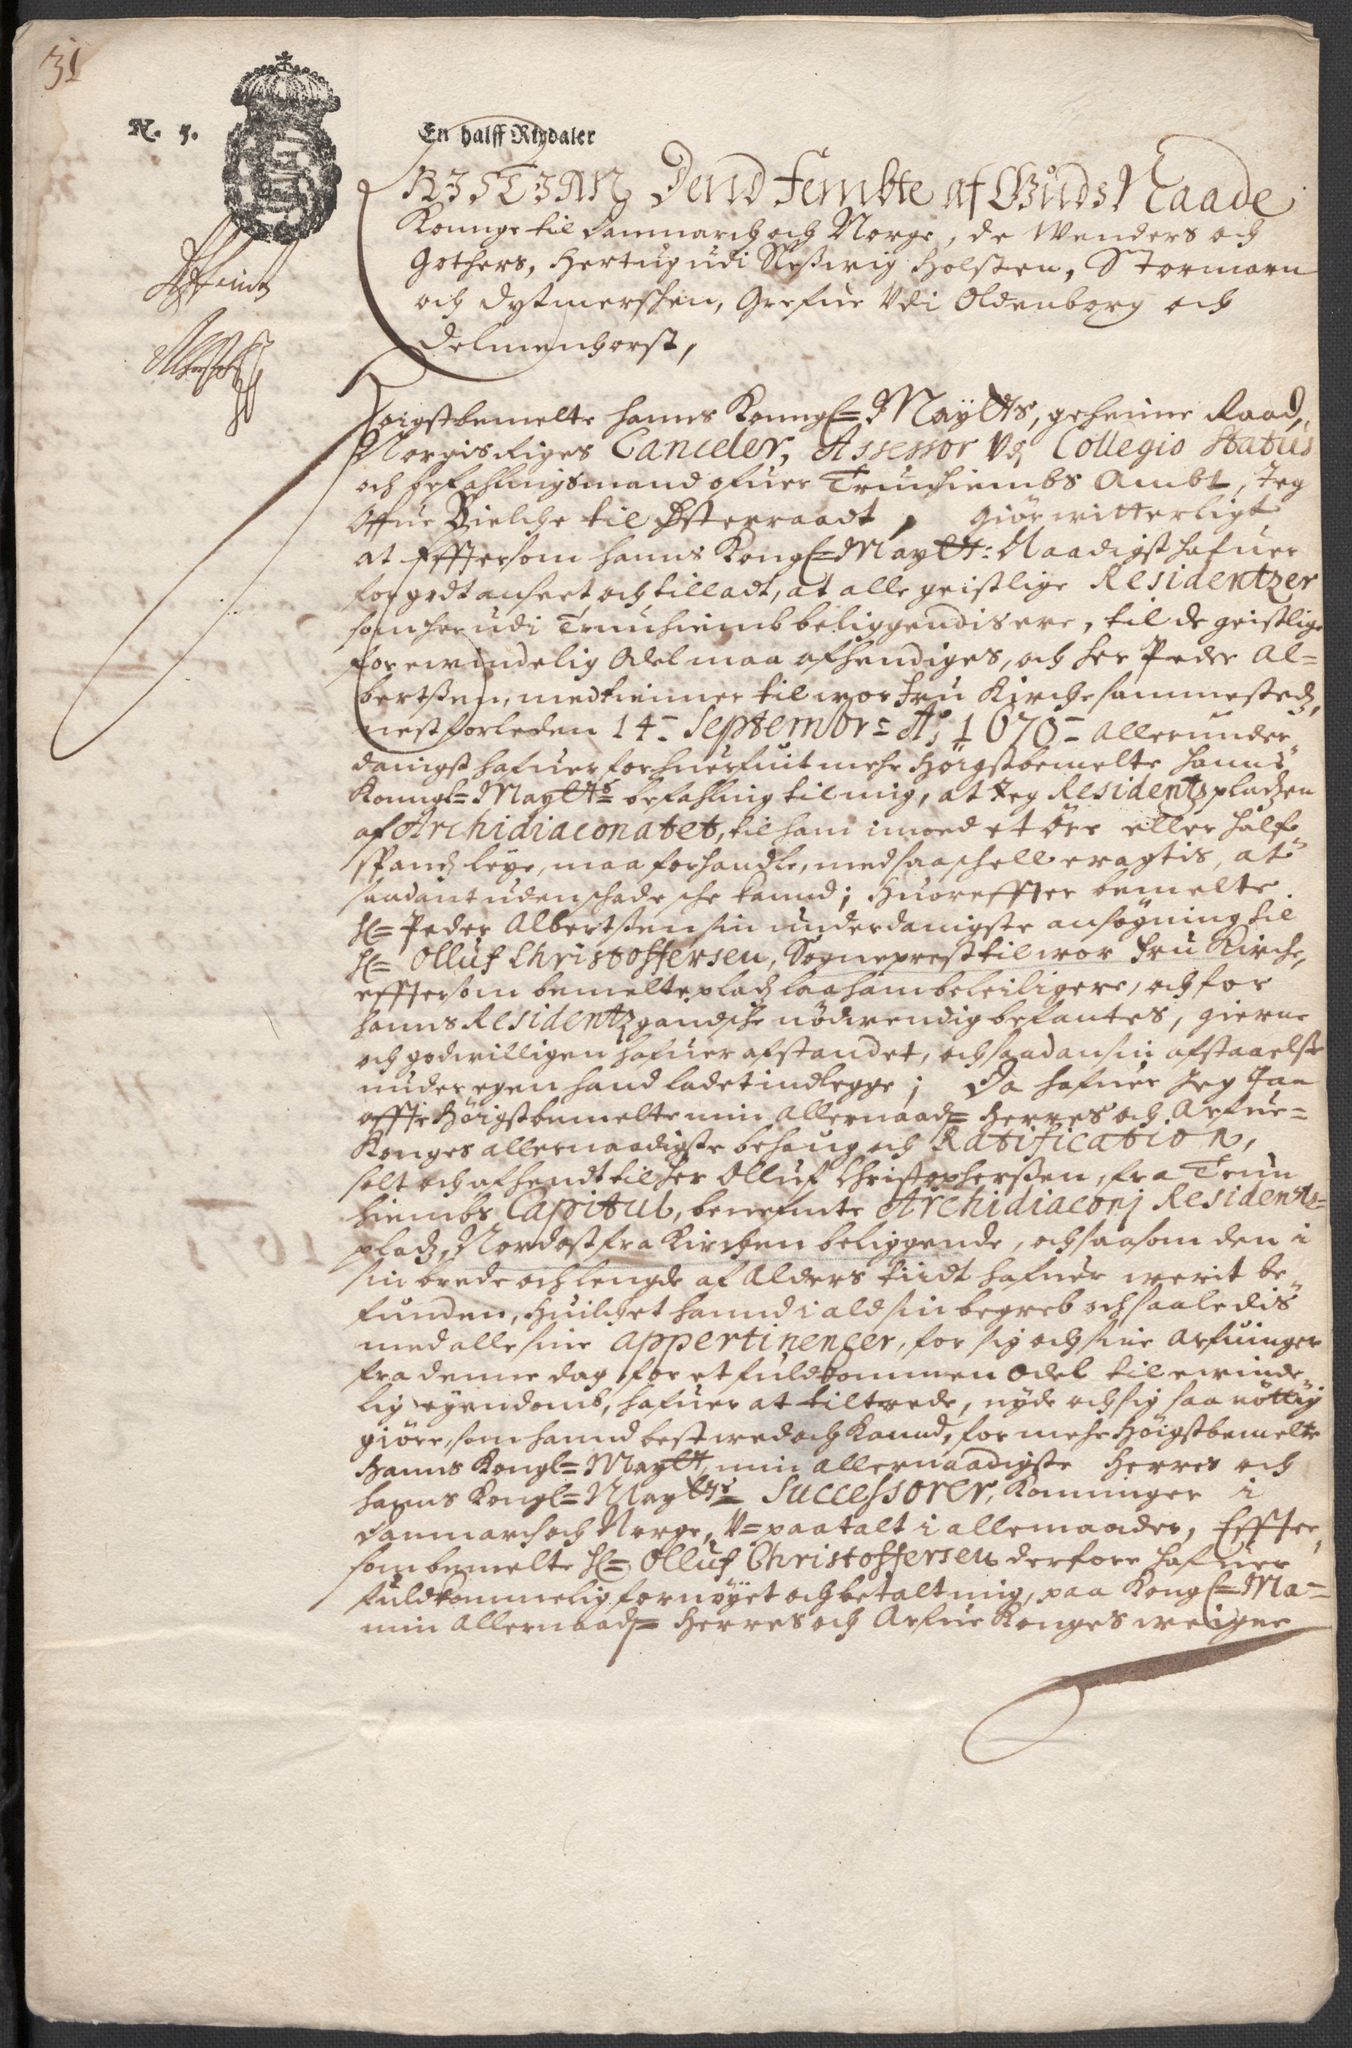 31
N. 5.
En halff Rixdaler
CHRISTIAN Dend Fembte af Guds Naade
Konnge til Danmarch och Norge, de Wenders och
Gothers, Hertug udi Sleßwig Holsten, Stormarn
och Dytmerschen, Grefue Vdi Oldenborg och
Delmenhorst,
Høigstbemelte hanns Konngl= Maÿtts, geheime Raad,
Norgis Riges Canceler, Assessor Vdj Collegio Status
och befahlingsmand ofuer Trunhiembs Ambt, Jeg
Offue Bielche til Østerraadt, giør witterligt
at Efftersom hanns Kongl= Maytt: Naadigst hafuer
for godt anseet och tilladt, at alle geistlige Residentzer
som her udi Trunhiemb beliggendis ere, til de geistlige
for ewindelig Odel maa afhendiges, och her Peder Al=
bertßen, medtiener til wor Fru Kirche sammestedz,
nestforleden 14= Septembr= Ao; 1670= allerunder
danigst hafuer forhuerfuit mehr Høigstbemelte hanns
Konngl= Maytts= befahling til mig, at Jeg Residentzpladzen
af Archidiaconatet, til ham imod et Øre eller half
spandz leye, maa forhandle, med saa schell eragtis, at
saadant uden schade sche kannd; Huoreffter bemelte
Hr= Peder Albertßen sin underdanigste ansøgning til
Hr= Olluf Christoffersen, Sogneprest til wor Fru Kirche,
efftersom bemelte pladz laa ham beleiligere, och for
hanns Residentz gandsche nødwendig befantes, gierne
och godwilligen hafuer afstandet, och saadan sin afstaaelse
under egen hand ladet indlegge; Da hafuer Jeg Paa
offte Høigstbemelte min Allernaad= Herres och Arfue=
Konges allernaadigste behaug och Ratification,
solt och afhendt til Her Olluf Christopherßen, fra Trun
hiembs Capitul, benefnte Archidiaconj Residentz=
pladz, Nordost fra Kirchen beliggende, och saasom den i
sin brede och lengde af Alders tiidt hafuer werit be
funden, Huilchet hannd i ald sin begreb och saaledis
med alle sine appertinencer, for sig och sine Arfuinger
fra denne dag for et fuldkommen Odel til ewinde
lig eyendomb, hafuer at tiltrede, nyde och sig saa nøttig
giøre, som hannd best wed och kannd, for mehr Høigstbemelte
Hanns Kongl= Maytt, min allernaadigste Herres och
hanns Kongl= Maytts= Successorer, Konninger i
Danmarch och Norge, V=paatalt i alle maader, Effter,
som bemelte Hr= Olluf Christoffersen derfore hafuer
fuldkommelig fornøyet och betalt mig, paa Kongl= Ma=
min Allernaad= Herres och Arfue Konges weigne